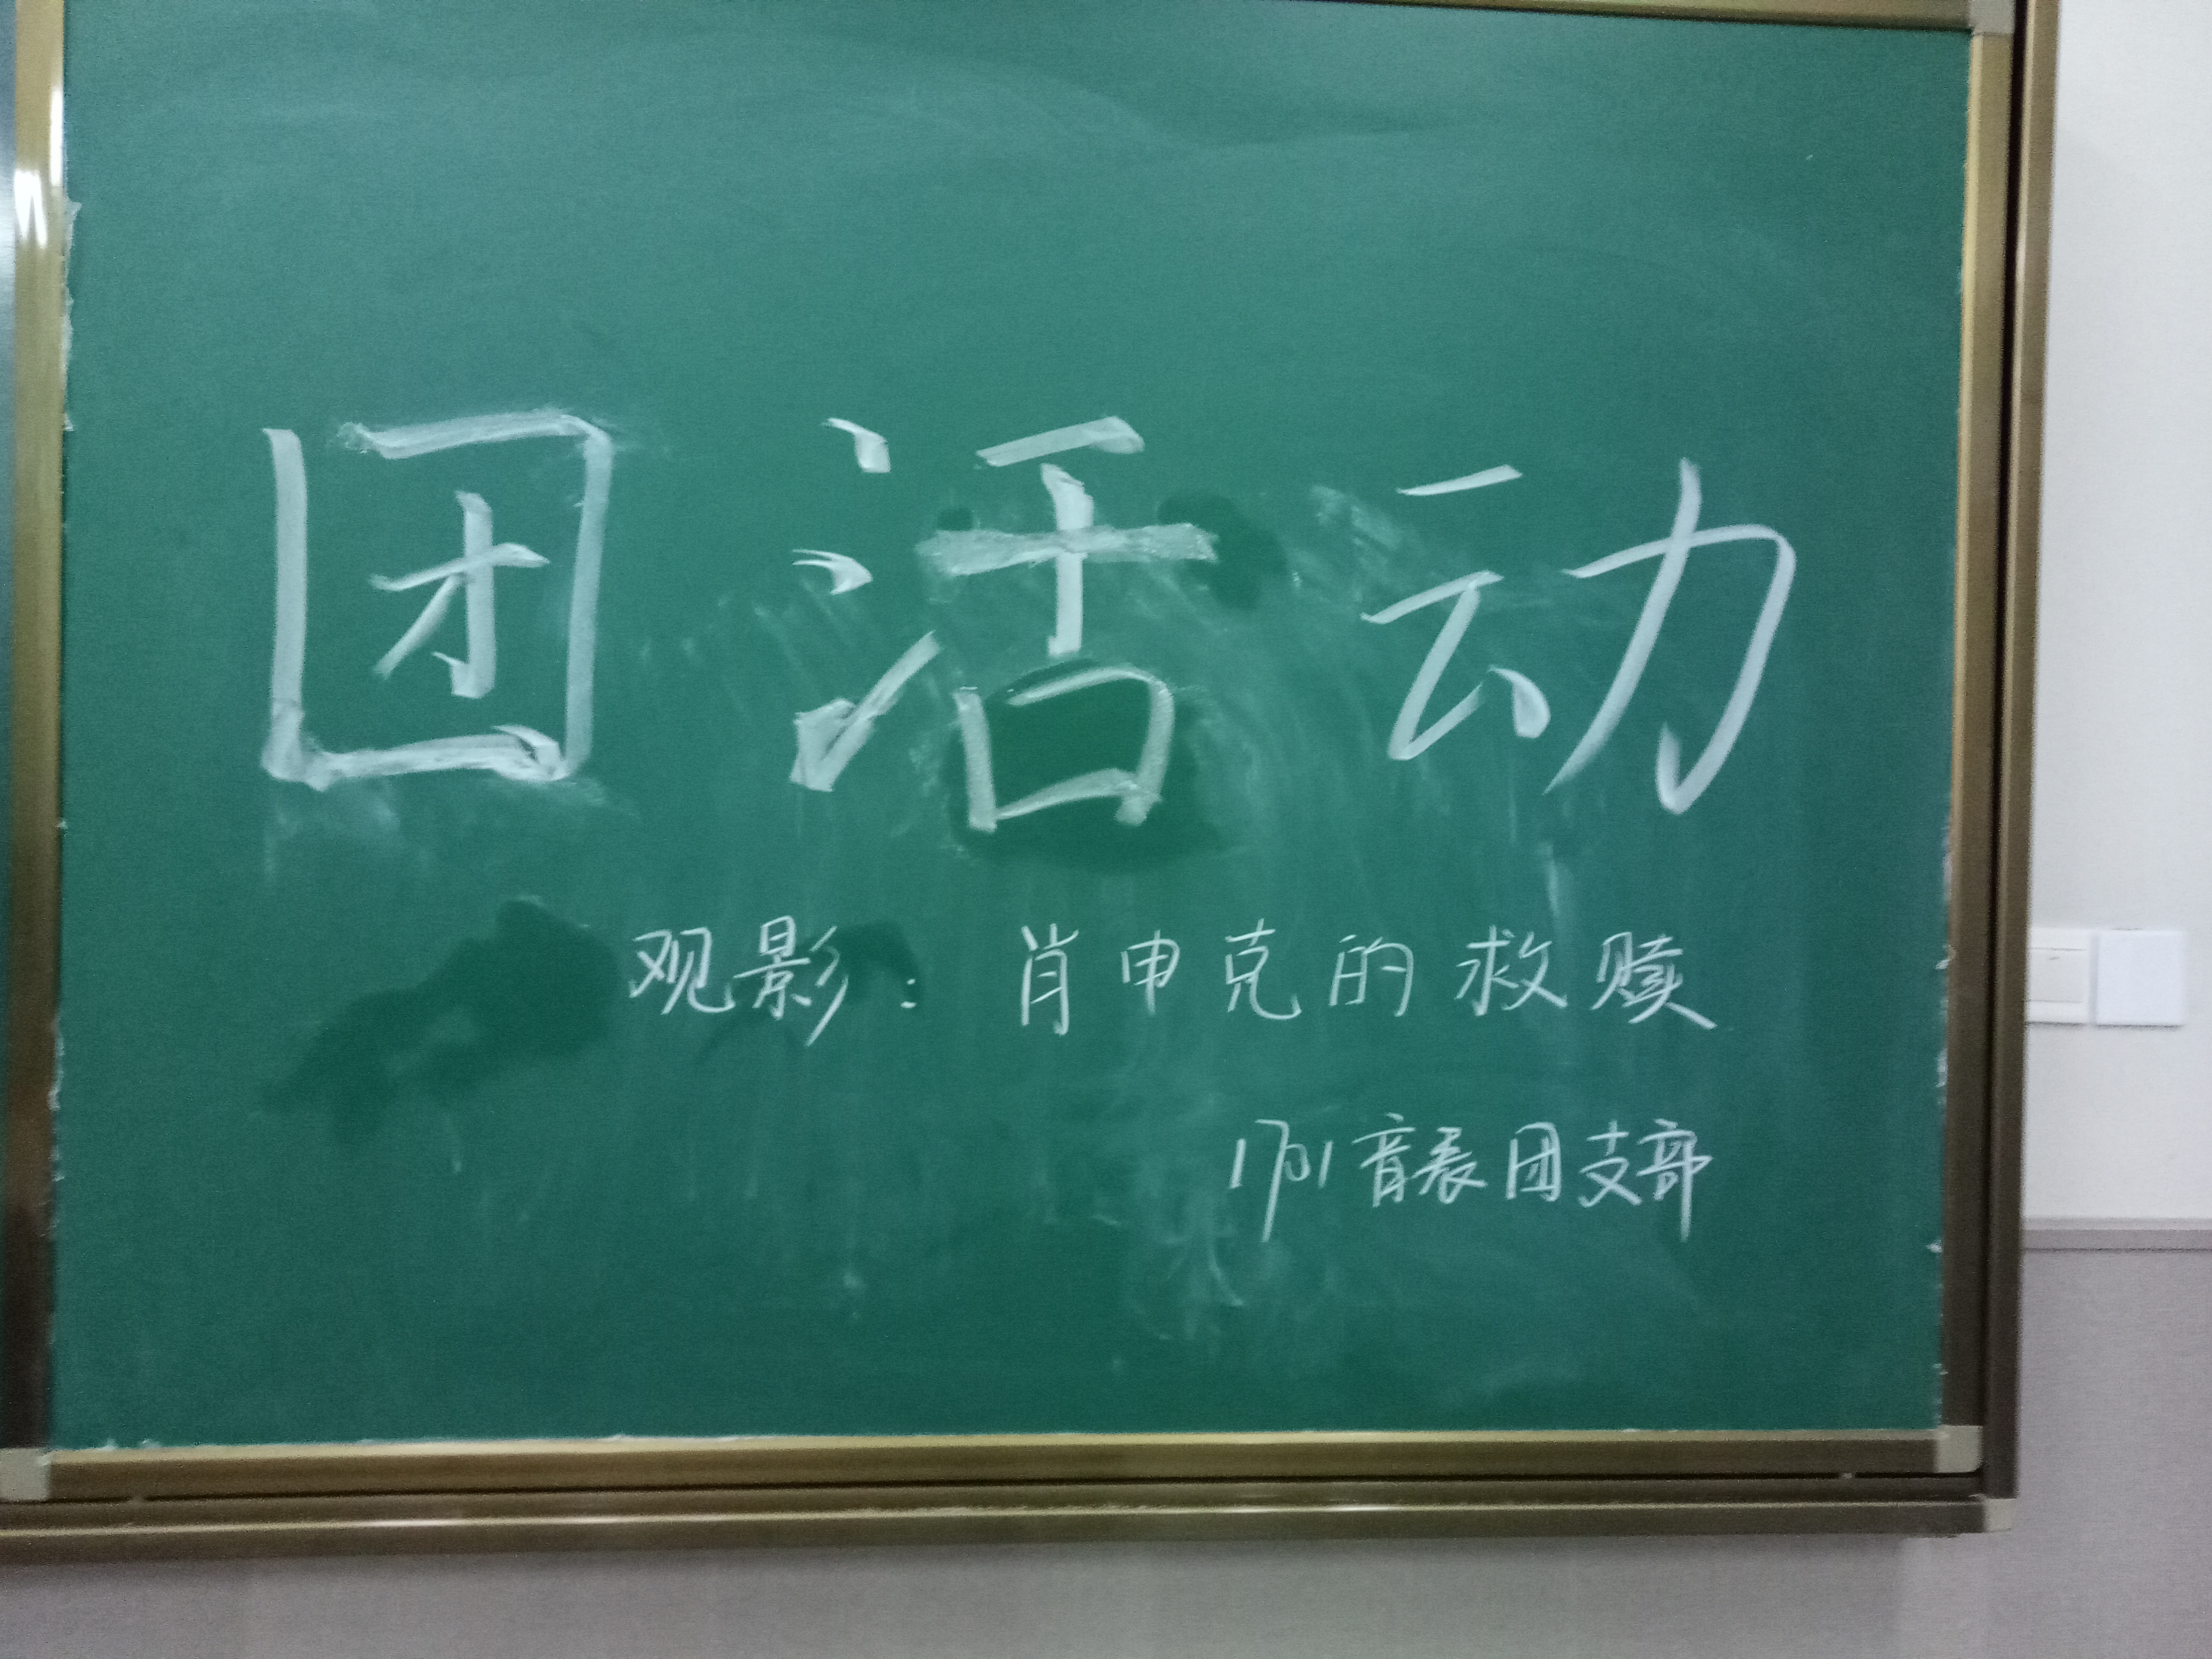 团活动
观影：肖申克的救赎
1701音表团支部